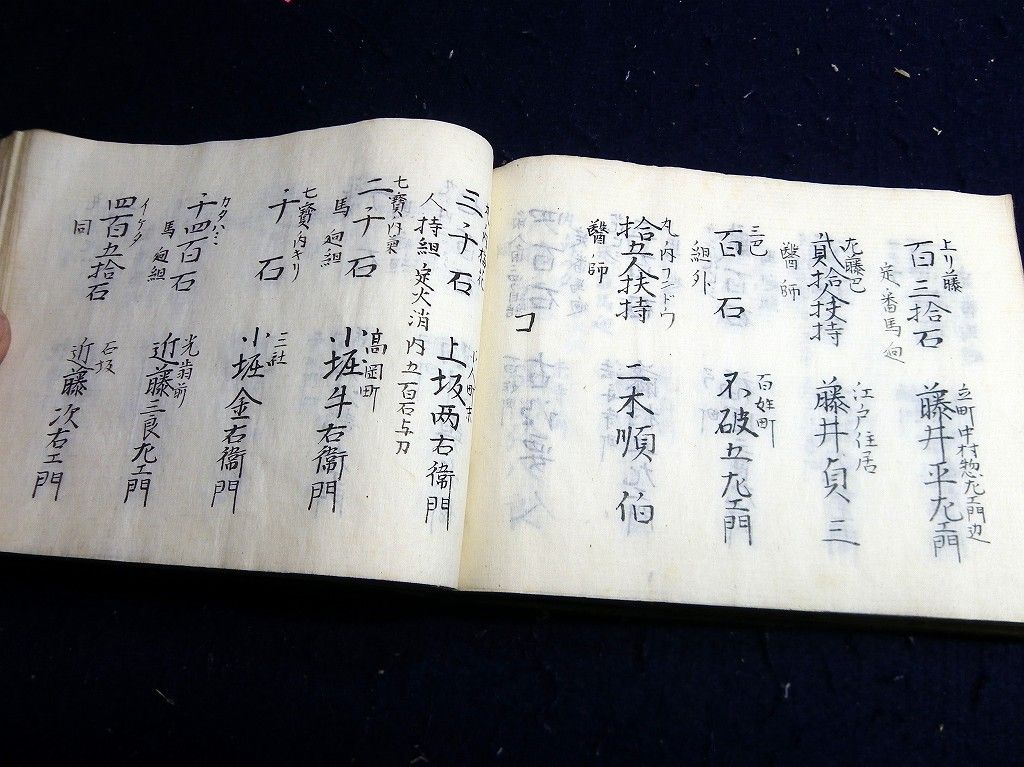 上り藤
百三拾石
定番馬廻
立町中村惣左エ門辺
藤井平左エ門
左藤巴
貳拾人扶持
醫師
江戸住居
藤井貞三
三巴
百石
組外
百姓町
不破五左エ門
丸内フンドウ
拾五人扶持
醫師
二木順伯
コ
三千石
人持組定火消内五百石与力
上坂两右衛門
七寶内
二千石
馬廻組
高岡町
小堀牛右衛門
七寶内キリ
千石
三社
小堀金右衛門
カタハミ
千四百石
馬廻組
光翁前
近藤三良左エ門
イケタ
四百五拾石
同
石坂
近藤次右エ門